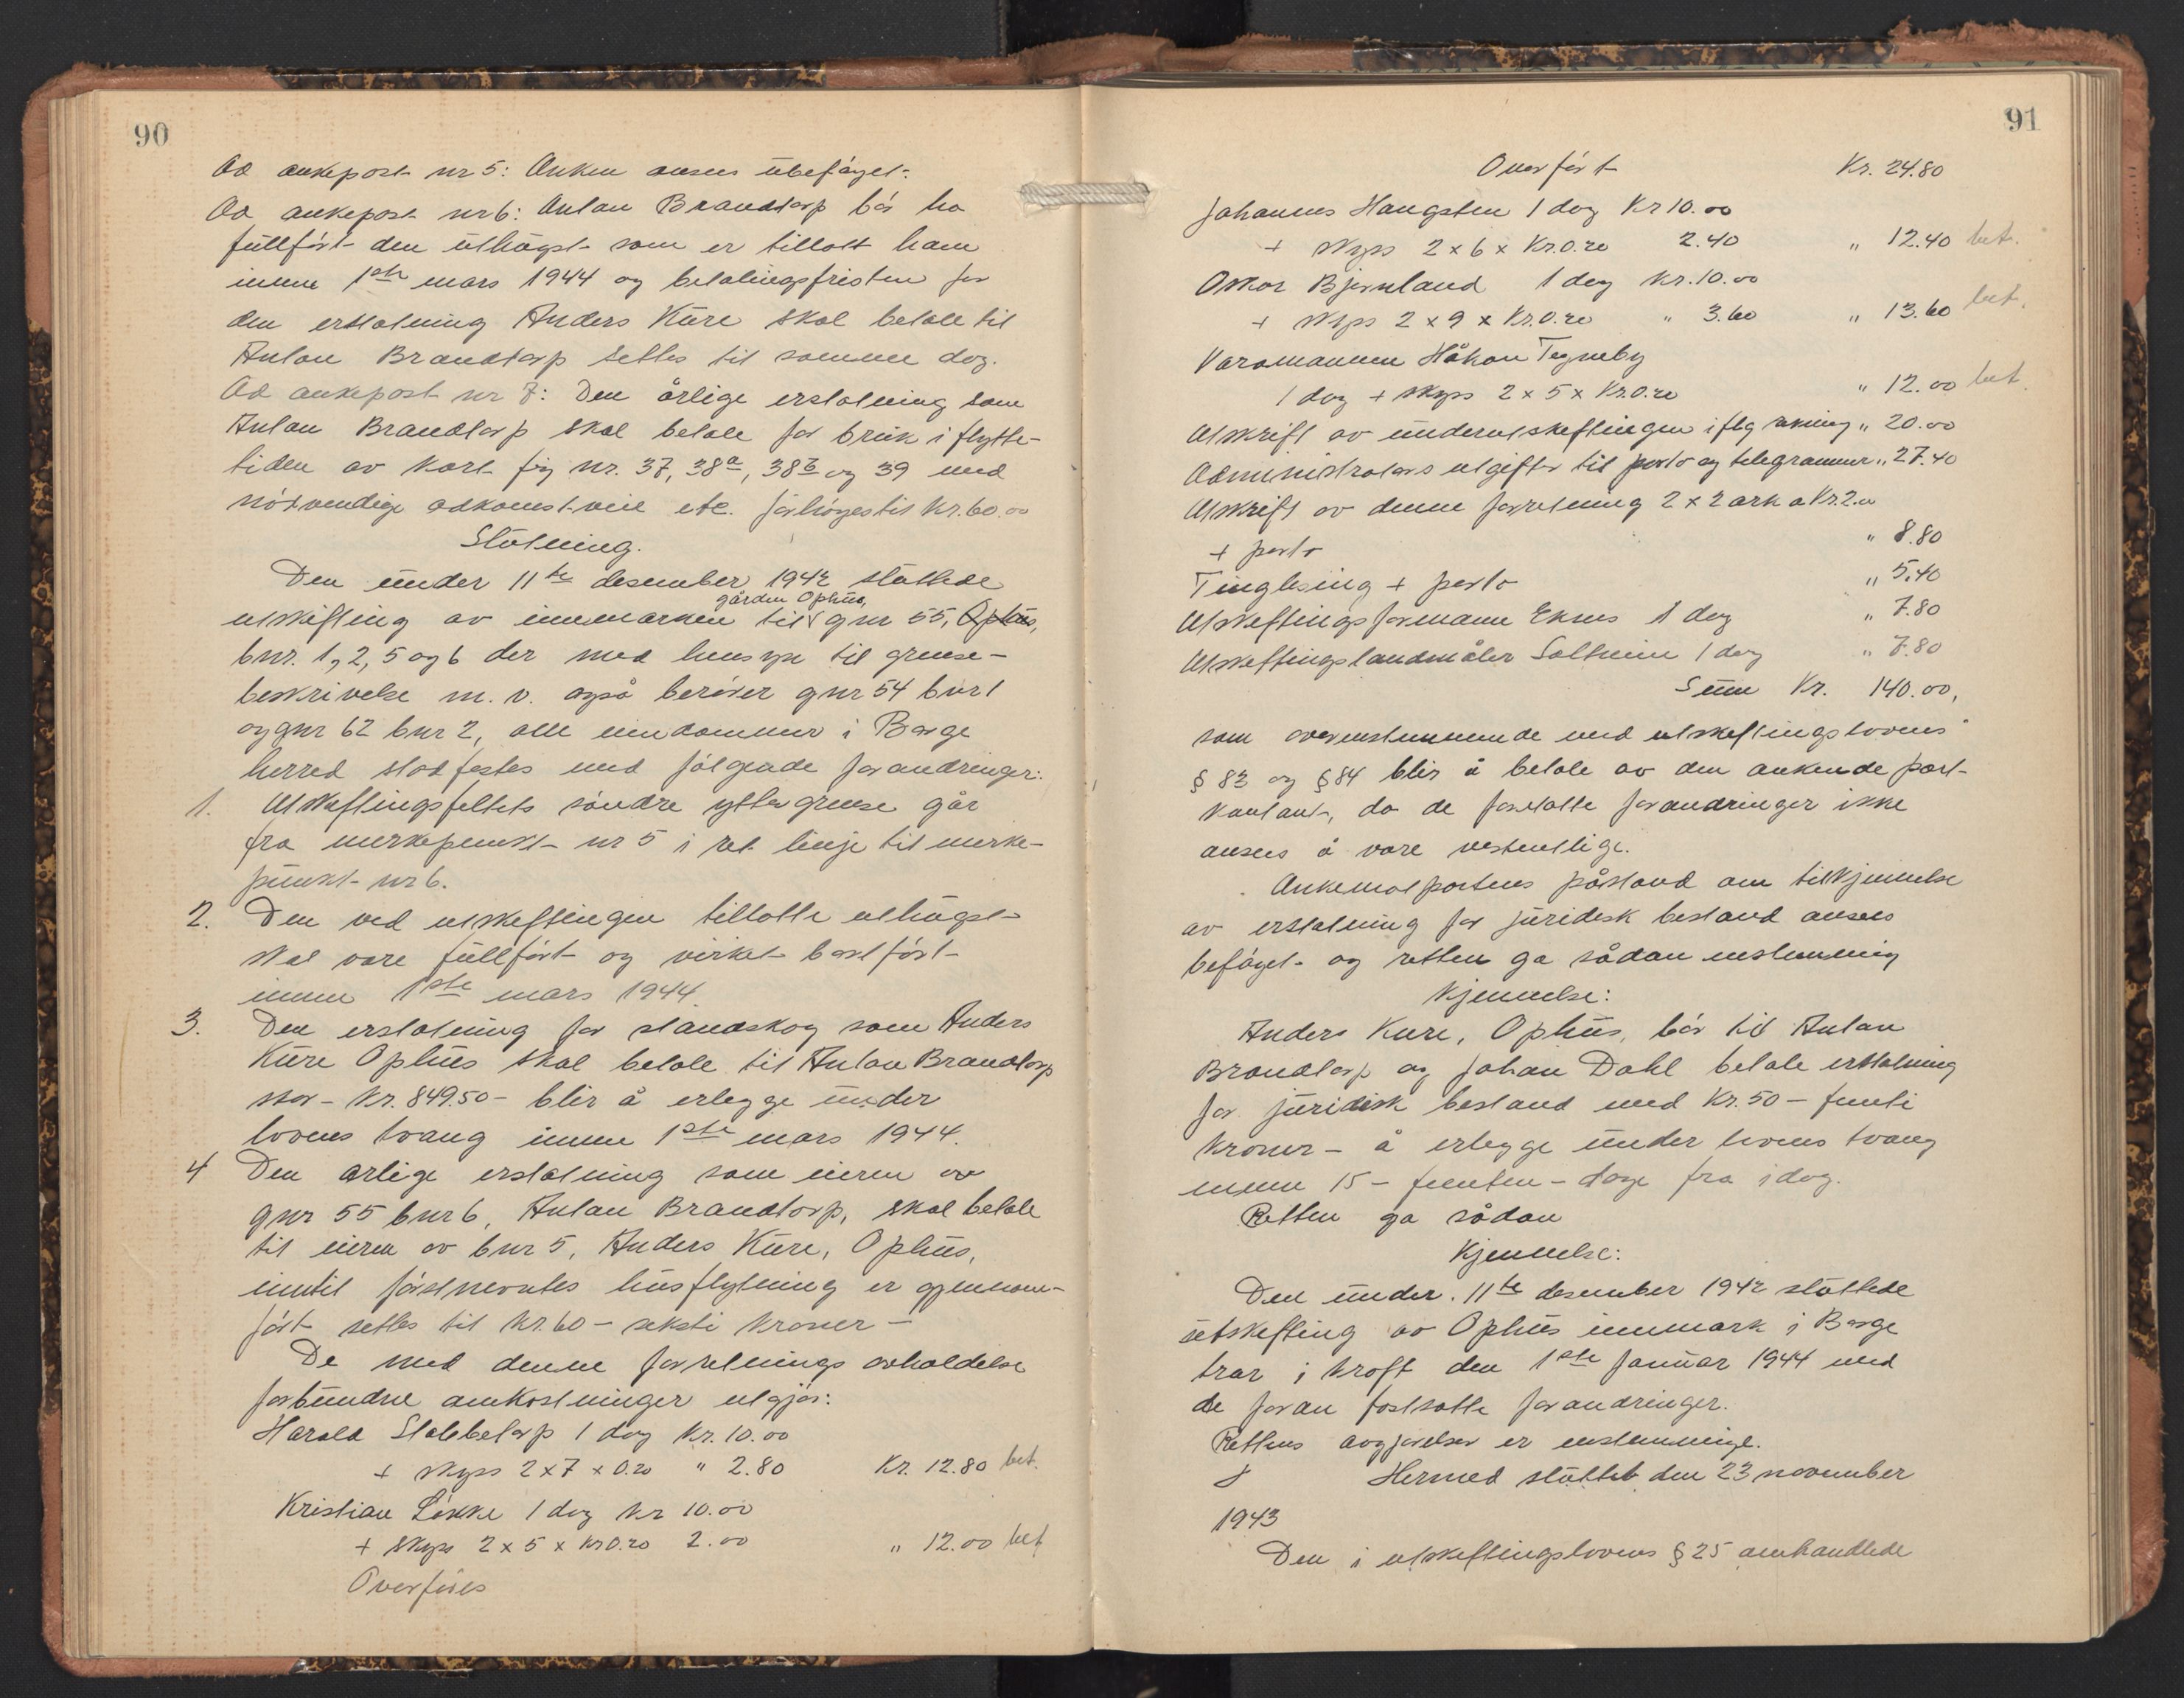 90
Ad ankepost nr 5: Anken anses ubeføyet.
Ad ankepost nr 6: Anton Brandtorp bør ha
fullført den uthogst som er tillatt ham
innen 1ste mars 1944 og betalingsfristen for
den erstatning Anders Kure skal betale til
Anton Brandtorp settes til samme dag.
Ad ankepost nr 7: Den årlige erstatning som
Anton Brandtorp skal betale for bruk i flytte-
tiden av kart fig nr. 37, 38a, 38b og 39 med
nødvendige adkomstveie etc. forhøyes til Kr. 60.00
Slutning.
Den under 11te desember 1942 sluttede
gården Ophus,
utskifting av innmarken til gnr 55, Ophus,
bnr. 1, 2, 5 og 6 der med hensyn til grense-
beskrivelse m. v. også berører gnr 54 bnr 1
og gnr 62 bnr 2, alle eiendommer i Borge
herred stadfestes med følgende forandringer:
1. Utskiftingsfeltets søndre yttergrense går
fra merkepunkt nr 5 i ret linje til merke-
punkt nr 6.
2. Den ved utskiftingen tillatte uthogst
skal være fullført og virket bortført
innen 1ste mars 1944.
3. Den erstatning for standskog som Anders
Kure Ophus skal betale til Anton Brandtorp
stor - Kr. 849.50 - blir å erlegge under
lovens tvang innen 1ste mars 1944.
4 Den årlige erstatning som eieren av
gnr 55 bnr 6, Anton Brandtorp, skal betale
til eieren av bnr 5, Anders Kure, Ophus,
inntil førstnevntes husflytning er gjennom-
ført settes til Kr. 60 - seksti kroner -
De med denne forretnings avholdelse
forbundne omkostninger utgjør:
Harald Stabbetorp 1 dag Kr. 10.00
+ skyss 2 x 7 x 0.20 " 2.80 Kr. 12.80 bet.
Kristian Løkke 1 dag kr 10.00
+ skyss 2 x 5 x kr 0.20 2.00 " 12.00 bet
Overføres
91
Overført Kr. 24.80
Johannes Haugsten 1 dag Kr 10.00
+ skyss 2 x 6 x Kr. 0.20 2.40 " 12.40 bet.
Oskar Bjørnland 1 dag kr. 10.00
+ skyss 2 x 9 x Kr. 0.20 " 3.60 " 13.60 bet.
Varamannen Håkon Tegneby
1 dag + skyss 2 x 5 x Kr. 0.20 " 12.00 bet.
Utskrift av underutskiftingen iflg rekning " 20.00
Administrators utgifter til porto og telegrammer " 27.40
Utskrift av denne forretning 2 x 2 ark a Kr. 2.00
+ porto " 8.80
Tinglesing + porto " 5.40
Utskiftingsformann Eknes 1 dag " 7.80
Utskiftingslandmåler Soltheim 1 dag " 7.80
Sum Kr. 140.00,
som overenstemmende med utskiftingslovens
§ 83 og § 84 blir å betale av den ankende part
kontant, da de foretatte forandringer ikke
anses å være vesentlige.
Ankemotpartens påstand om tilkjennelse
av erstatning for juridisk bistand anses
beføyet og retten ga sådan enstemmig
Kjennelse:
Anders Kure, Ophus, bør til Anton
Brandtorp og Johan Dahl betale erstatning
for juridisk bistand med Kr. 50 - femti
kroner - å erlegge under lovens tvang
innen 15 - femten - dage fra idag.
Retten ga sådan
Kjennelse:
Den under 11te desember 1942 sluttede
utskifting av Ophus innmark i Borge
trær i kraft den 1ste januar 1944 med
de foran fastsatte forandringer.
Rettens avgjørelser er enstemmige.
Hermed sluttet den 23 november
1943
Den i utskiftingslovens § 25 omhandlede